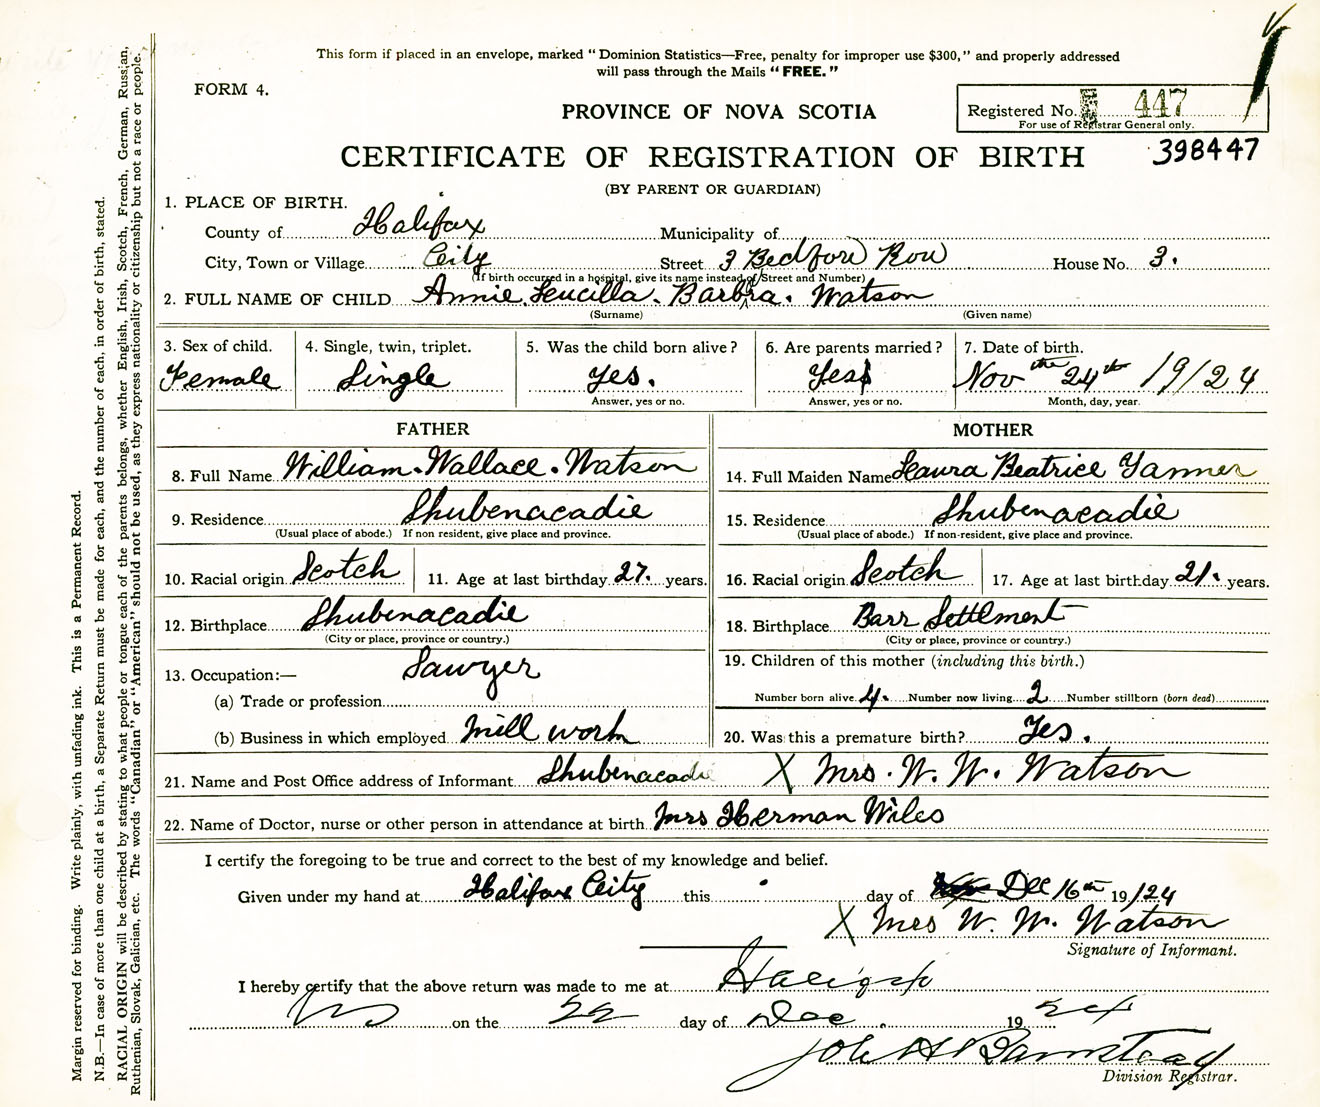 This form if placed in an envelope, marked "Dominion Statistics—Free, penalty for improper use $300," and properly addressed
will pass through the Mails "FREE."
FORM 4.
PROVINCE OF NOVA SCOTIA
Registered No. 447
For use of Registrar General only.
CERTIFICATE OF REGISTRATION OF BIRTH
398447
(BY PARENT OR GUARDIAN)
1. PLACE OF BIRTH.
County of Halifax Municipality of
City, Town or Village City Street 3 Bedford Row House No. 3.
(If birth occurred in a hospital, give its name instead of Street and Number)
2. FULL NAME OF CHILD Annie. Leucilla. Barbra. Watson
(Surname) (Given name)
3. Sex of child. 4. Single, twin, triplet. 5. Was the child born alive? 6. Are parents married? 7. Date of birth.
Female Single Yes. Yes Nov the 24th 19/24
Answer, yes or no. Answer, yes or no. Month, day, year.
FATHER MOTHER
8. Full Name William. Wallace. Watson 14. Full Maiden Name Laura Beatrice Tanner
9. Residence Shubenacadie 15. Residence Shubenacadie
(Usual place of abode.) If non resident, give place and province. (Usual place of abode.) If non-resident, give place and province.
10. Racial origin Scotch 11. Age at last birthday 27. years. 16. Racial origin Scotch 17. Age at last birthday 21. years.
12. Birthplace Shubenacadie 18. Birthplace Barr Settlment
(City or place, province or country.) (City or place, province or country.)
13. Occupation:— Sawyer 19. Children of this mother (including this birth.)
(a) Trade or profession Number born alive 4. Number now living 2 Number stillborn (born dead)
(b) Business in which employed mill work 20. Was this a premature birth? Yes.
21. Name and Post Office address of Informant Shubenacadie X Mrs. W. W. Watson
22. Name of Doctor, nurse or other person in attendance at birth Mrs Herman Wiles
I certify the foregoing to be true and correct to the best of my knowledge and belief.
Given under my hand at Halifax City this day of Dec 16th 19/24
X Mrs W. W. Watson
Signature of Informant.
I hereby certify that the above return was made to me at Halifax
NS on the 22 day of Dec. 19 24
John H Barnstead
Division Registrar.
Margin reserved for binding. Write plainly, with unfading ink. This is a Permanent Record.
N.B.—In case of more than one child at a birth, a Separate Return must be made for each, and the number of each, in order of birth, stated.
RACIAL ORIGIN will be described by stating to what people or tongue each of the parents belongs, whether English, Irish, Scotch, French, German, Russian,
Ruthenian, Slovak, Galician, etc. The words "Canadian" or "American" should not be used, as they express nationality or citizenship but not a race or people.